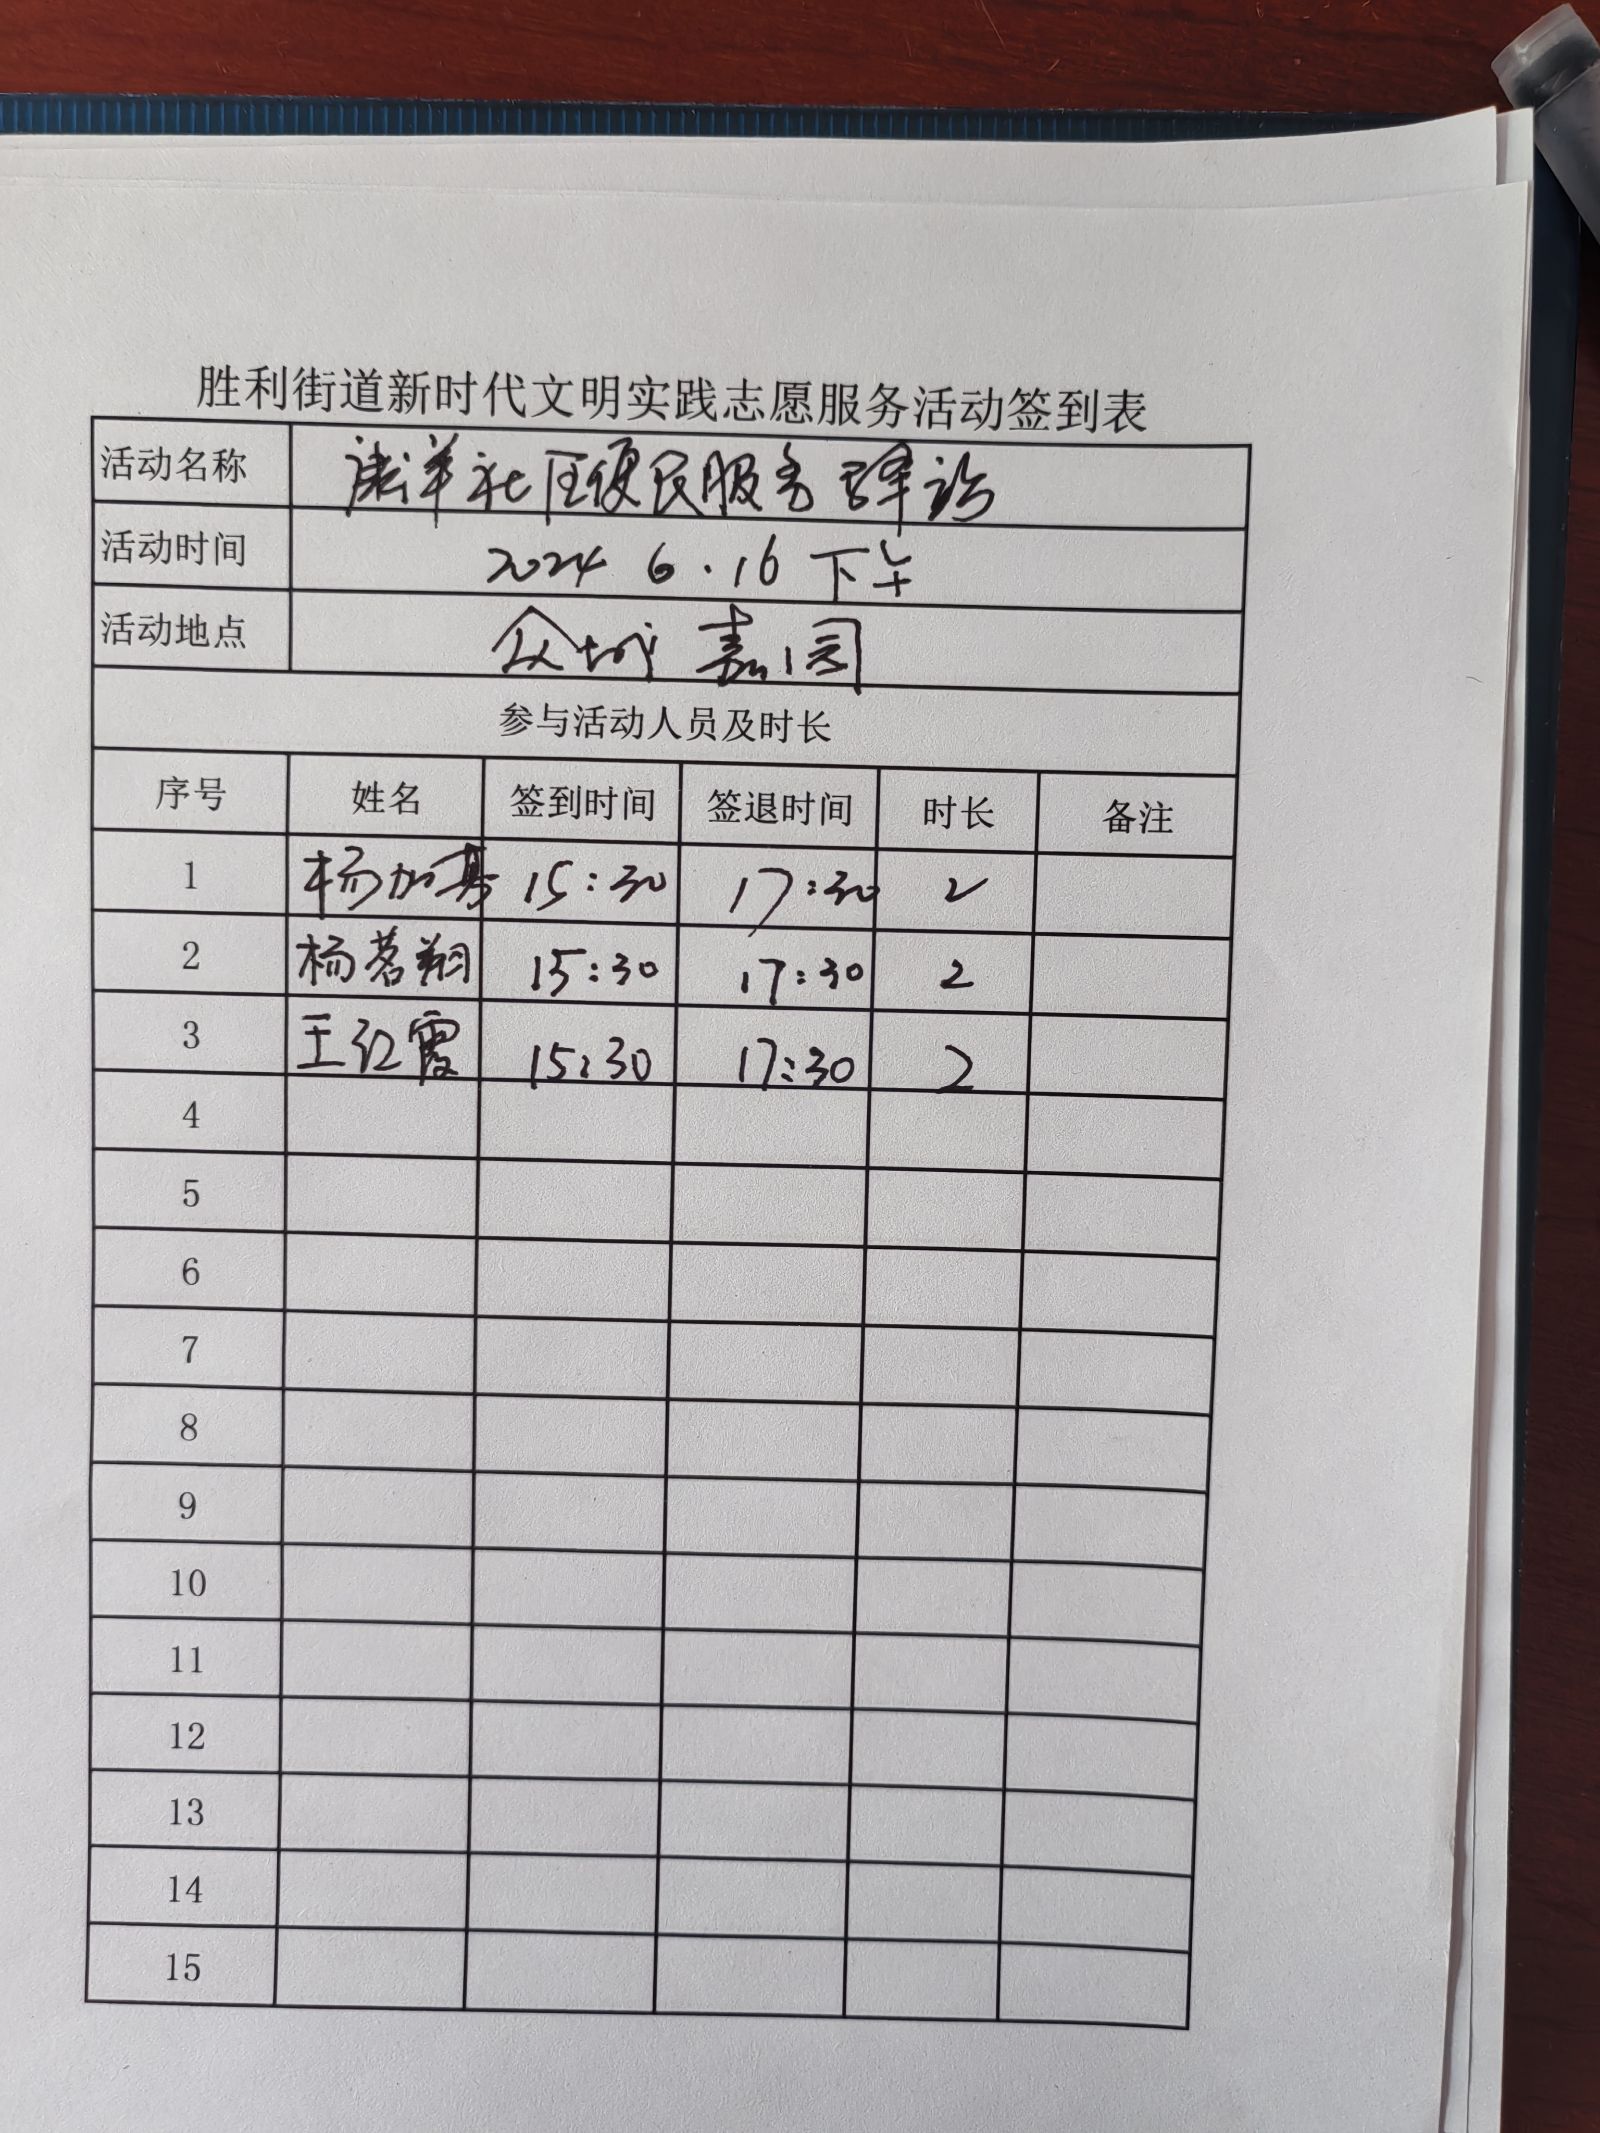 胜利街道新时代文明实践志愿服务活动签到表
活动名称 社区便民服务
活动时间 2024 6.16 下午
活动地点 众城嘉园
参与活动人员及时长
序号 姓名 签到时间 签退时间 时长 备注
1 杨加 15:30 17:30 2
2 杨茗翔 15:30 17:30 2
3 王红霞 15:30 17:30 2
4
5
6
7
8
9
10
11
12
13
14
15